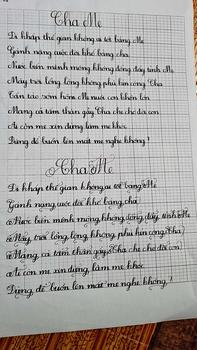 Cha Mẹ
Đi khắp thế gian không ai tốt bằng Mẹ
Gánh nặng cuộc đời khổ bằng cha
Nước biển mênh mông không đong đầy tình Mẹ
Mây trời lồng lộng không phủ kín công Cha
Tần tảo sớm hôm Mẹ nuôi con khôn lớn
Mang cả tấm thân gầy Cha che chở đời con
Ai còn mẹ xin đừng làm mẹ khóc
Đừng để buồn lên mắt mẹ nghe không!
Cha Mẹ
Đi khắp thế gian không ai tốt bằng Mẹ
Gánh nặng cuộc đời khổ bằng cha
Nước biển mênh mông không đong đầy tình Mẹ
Mây trời lồng lộng không phủ kín công Cha
Mang cả tấm thân gầy Cha che chở đời con
Ai còn mẹ xin đừng làm mẹ khóc
Đừng để buồn lên mắt mẹ nghe không!